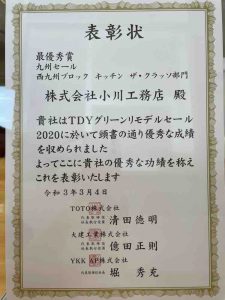 表彰状
最優秀賞
九州セール
西九州ブロック キッチン ザ・クラッソ部門
株式会社小川工務店 殿
貴社はTDYグリーンリモデルセール
2020に於いて頭書の通り優秀な成績
を収められました
よってここに貴社の優秀な功績を称え
これを表彰いたします
令和3年3月4日
TOTO株式会社
代表取締役
社長執行役員
清田徳明
大建工業株式会社
代表取締役
社長執行役員
億田正則
YKK AP株式会社
代表取締役社長
堀 秀充